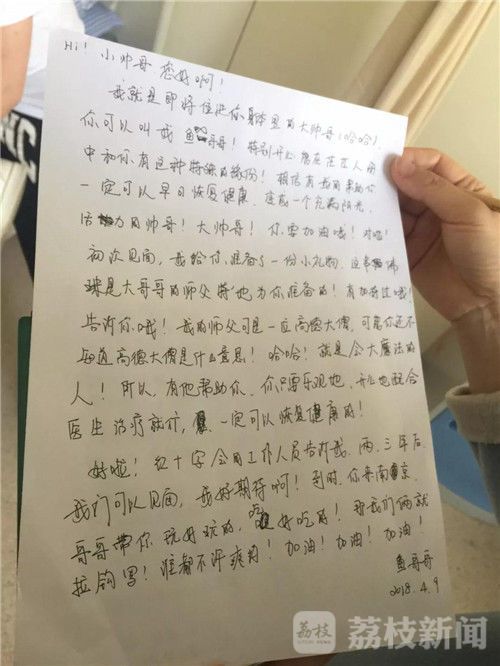 Hi! 小帅哥 您好啊!
我就是即将住进你身体里的大帅哥(哈哈)!
你可以叫我鱼哥哥! 特别开心能在茫茫人海
中和你有这种特殊的缘份! 相信有我的帮助你
一定可以早日恢复健康、变成一个充满阳光、
活力的帅哥! 大帅哥! 你要加油哦!
初次见面, 我给你准备了一份小礼物。这串佛
珠是大哥哥的师父特地为你准备的! 有加持过哦!
告诉你哦! 我的师父可是一位高德大僧, 可能你还不
知道高德大僧是什么意思! 哈哈! 就是会大魔法的
人! 所以、有他帮助你、你只要乐观地、开心地配合
医生治疗就行, 一定可以恢复健康的!
好啦! 红十字会的工作人员告诉我、两、三年后
我们可以见面, 我好期待啊! 到时、你来南京、
哥哥带你玩好玩的、吃好吃的! 那我们俩就
拉钩写! 谁都不许爽约! 加油! 加油! 加油!
鱼哥哥
2018.4.9
荔枝 荔枝新闻